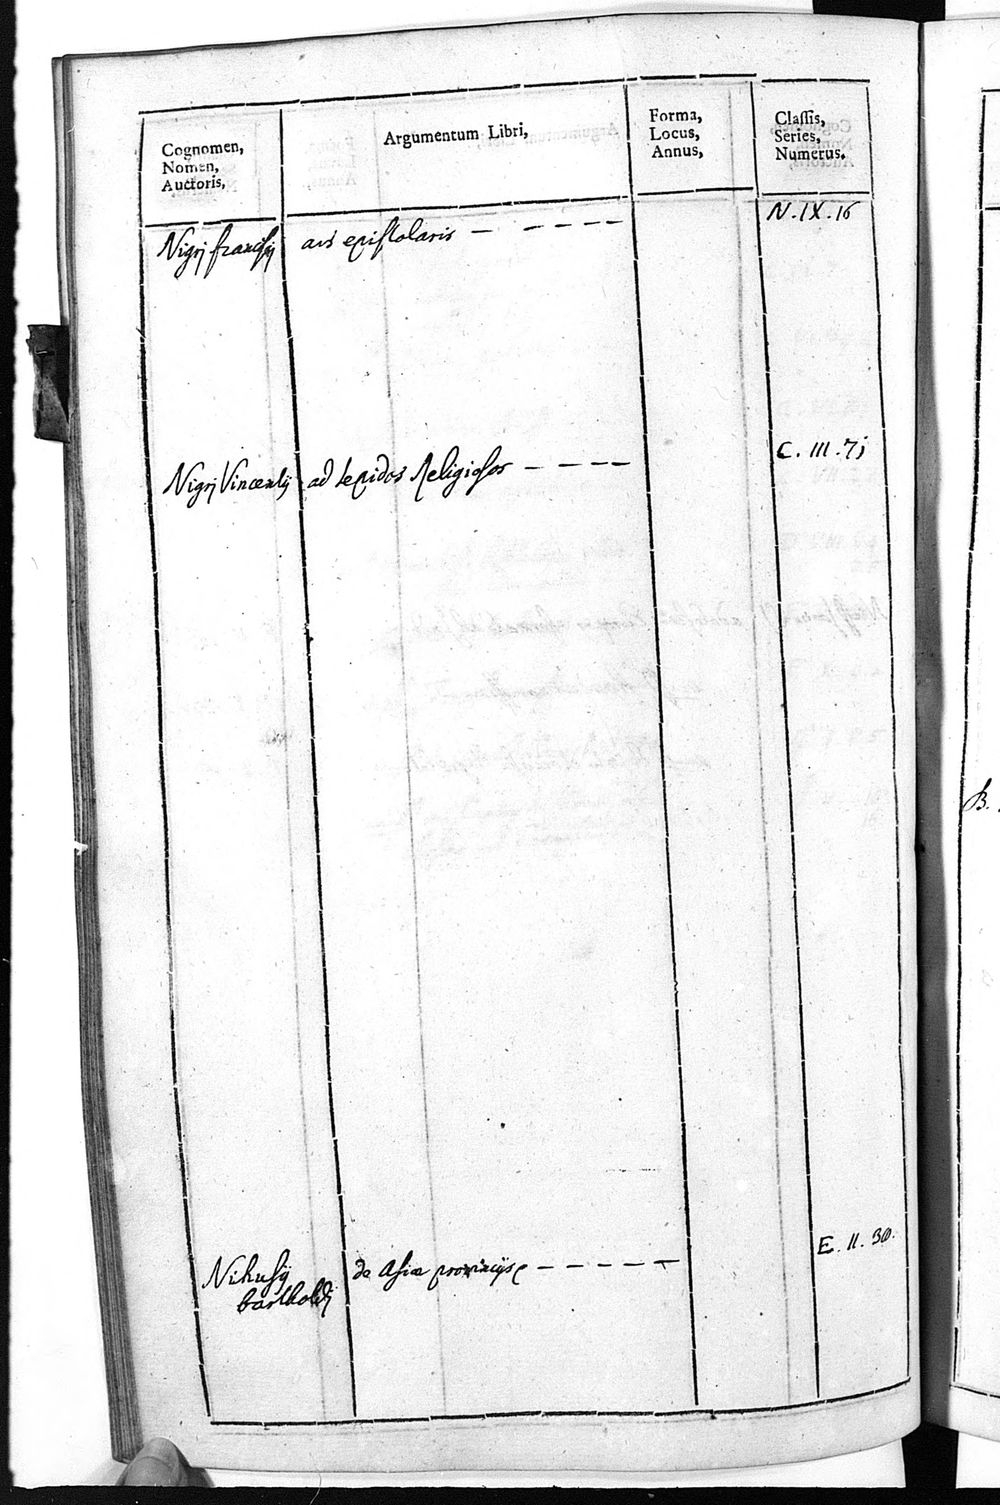 Cognomen,
Nomen,
Auctoris,
Argumentum Libri,
Forma,
Locus,
Annus,
Classis,
Series,
Numerus.
Nigrj francisij ars epistolaris - - - - - N. IX. 16
Nigrj Vincentij ad lepidos Religiosos - - - - C. III. 7j
Nihusij
bartholdi
de Asiæ provincijs - - - - - E. II. 30.
B.